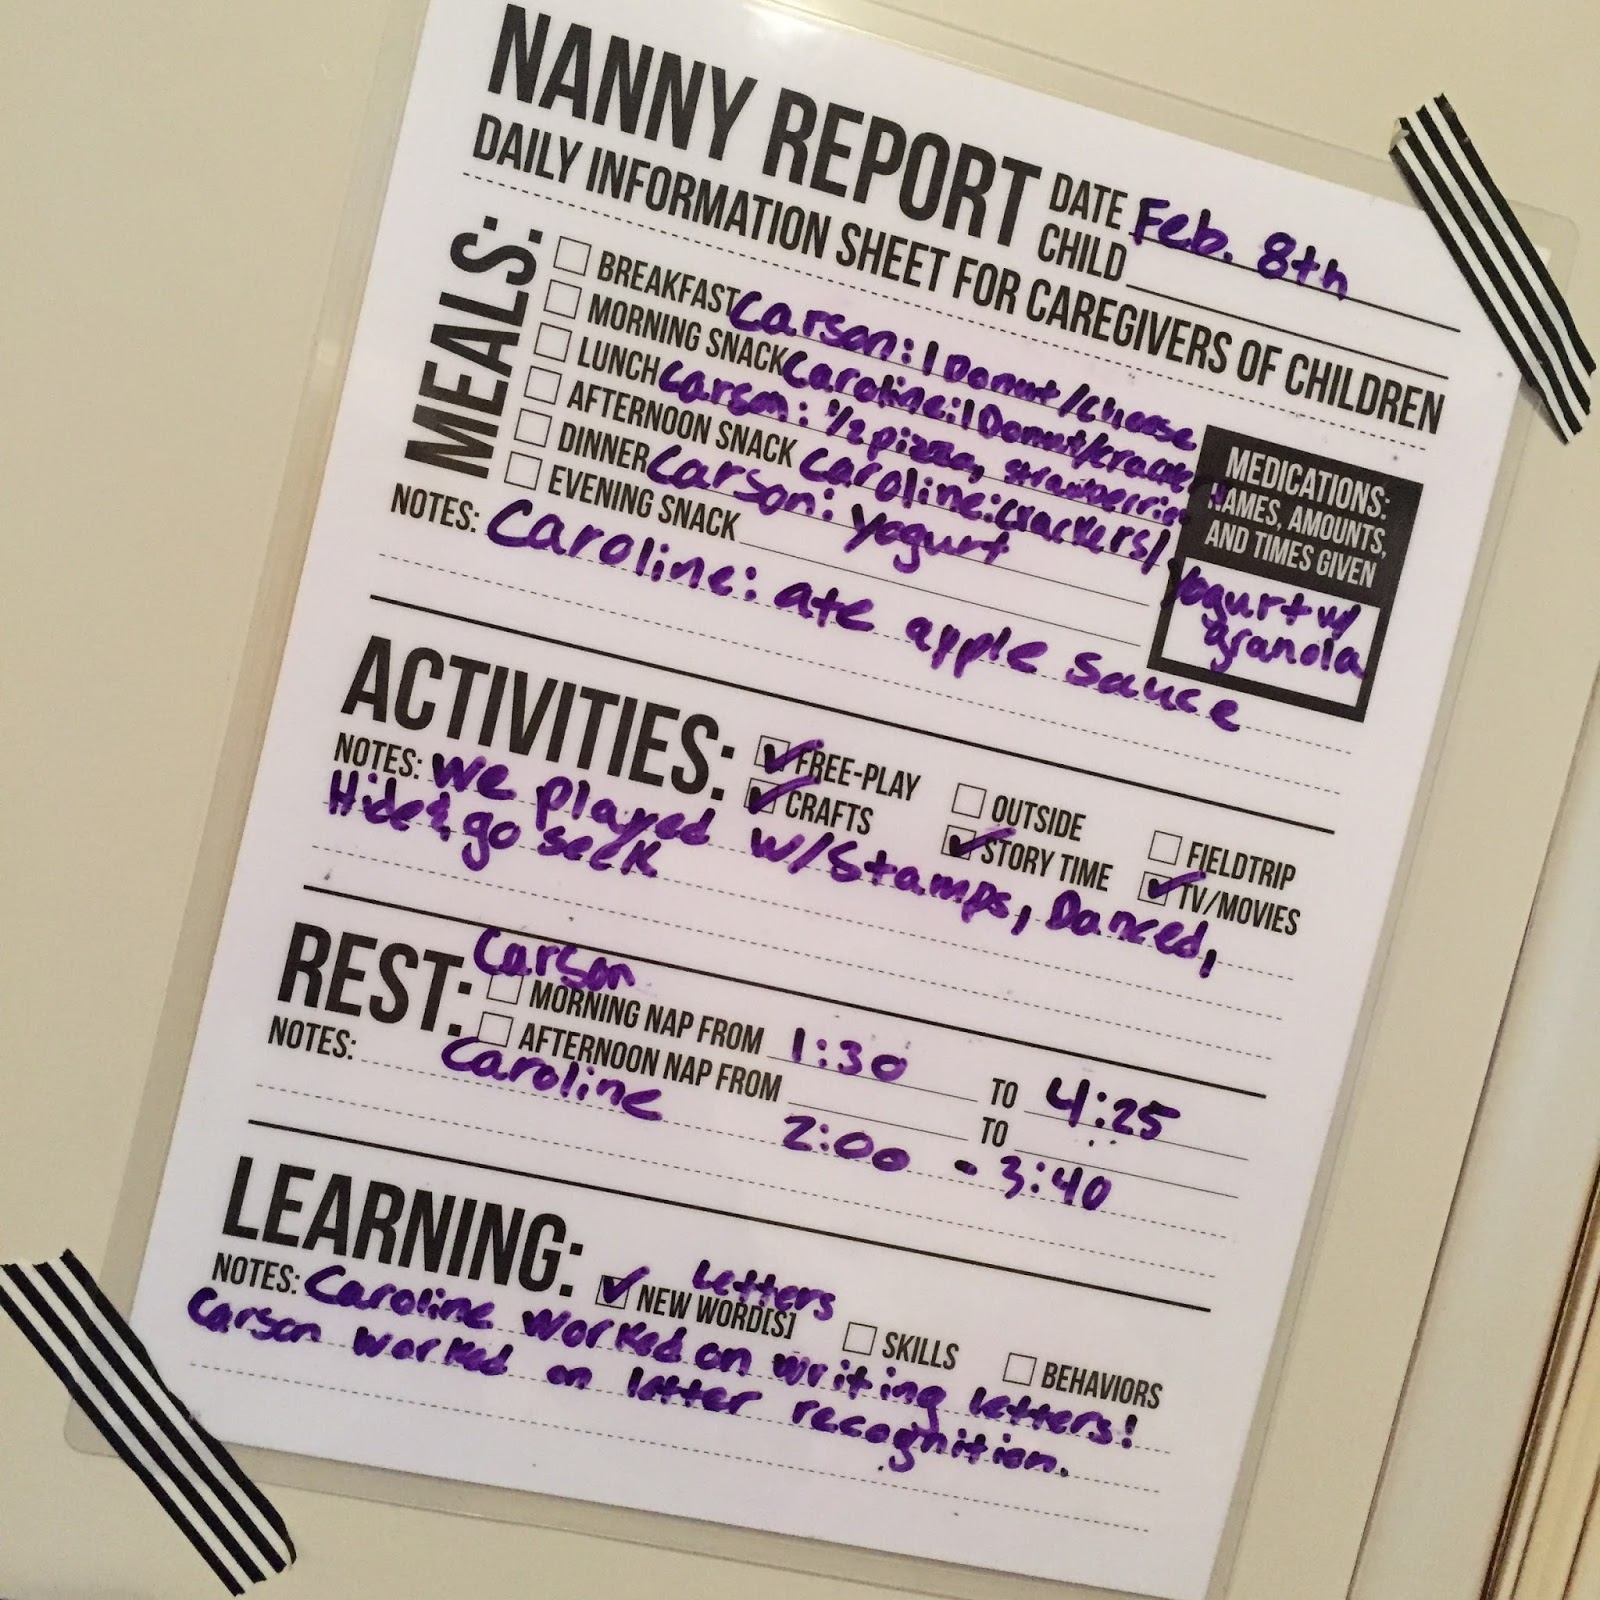 NANNY REPORT
DATE Feb. 8th
CHILD
DAILY INFORMATION SHEET FOR CAREGIVERS OF CHILDREN
MEALS:
BREAKFAST Carson: 1 Donut/cheese
MORNING SNACK Caroline: 1 Donut/cracker
LUNCH Carson: 1/2 pizza, strawberries
AFTERNOON SNACK Caroline: crackers/ Yogurt w/ granola
DINNER Carson: Yogurt
EVENING SNACK
NOTES: Caroline: ate apple sauce
MEDICATIONS:
NAMES, AMOUNTS,
AND TIMES GIVEN
ACTIVITIES:
FREE-PLAY OUTSIDE FIELDTRIP
CRAFTS STORY TIME TV/MOVIES
NOTES: We played w/stamps, Danced,
Hide & go seek
REST:
Carson
MORNING NAP FROM 1:30 TO 4:25
AFTERNOON NAP FROM TO
NOTES:
Caroline 2:00 - 3:40
LEARNING:
Letters
NEW WORD[S] SKILLS BEHAVIORS
NOTES: Caroline worked on writing letters!
Carson worked on letter recognition.